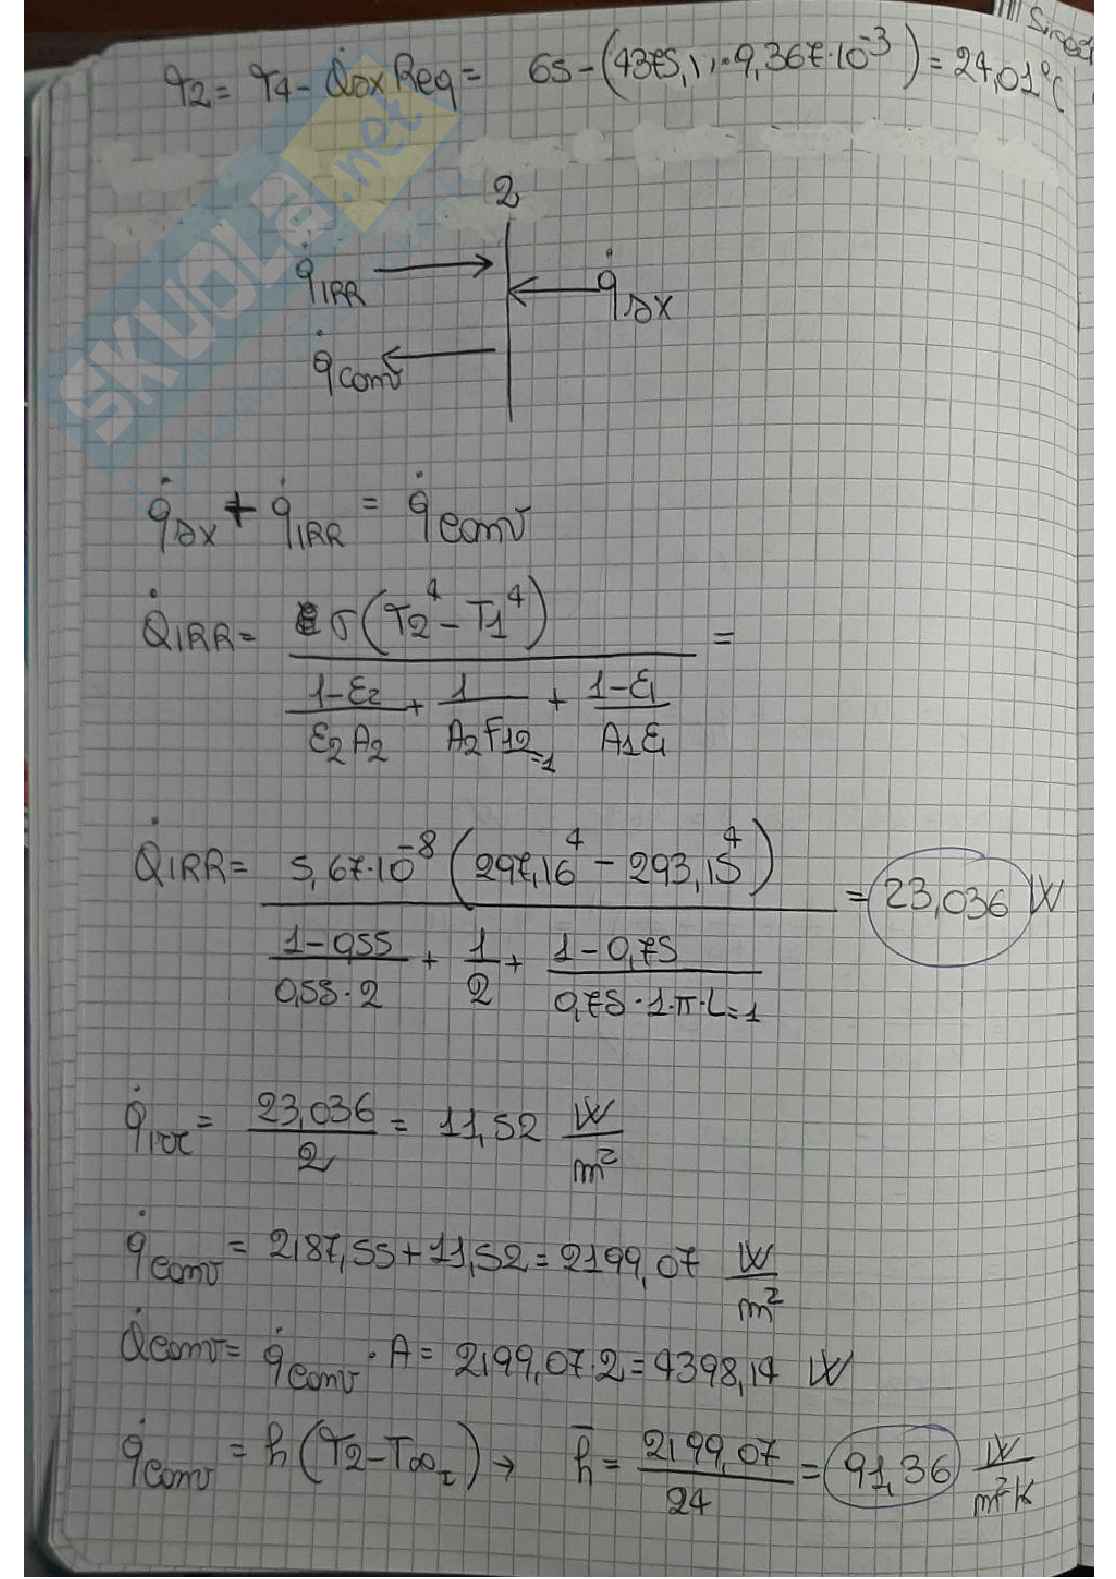 T2 = T4 - Q̇dx Req = 65 - (4375,1 · 9,367·10⁻³) = 24,01°C
SKUOLA.net
2
q̇IRR
q̇dx
q̇conv
q̇dx + q̇IRR = q̇conv
Q̇IRR = σ(T2⁴ - T1⁴) =
1-ε2 + 1 + 1-ε1
ε2A2 A2F12=1 A1ε1
Q̇IRR = 5,67·10⁻⁸ (297,16⁴ - 293,15⁴) = 23,036 W
1-0,55 + 1 + 1-0,75
0,55·2 2 0,75·1·π·L=1
q̇irr = 23,036 = 11,52 W
2 m²
q̇conv = 2187,55 + 11,52 = 2199,07 W
m²
Q̇conv = q̇conv · A = 2199,07·2 = 4398,14 W
q̇conv = h(T2-T∞2) → h̄ = 2199,07 = 91,36 W
24 m²K